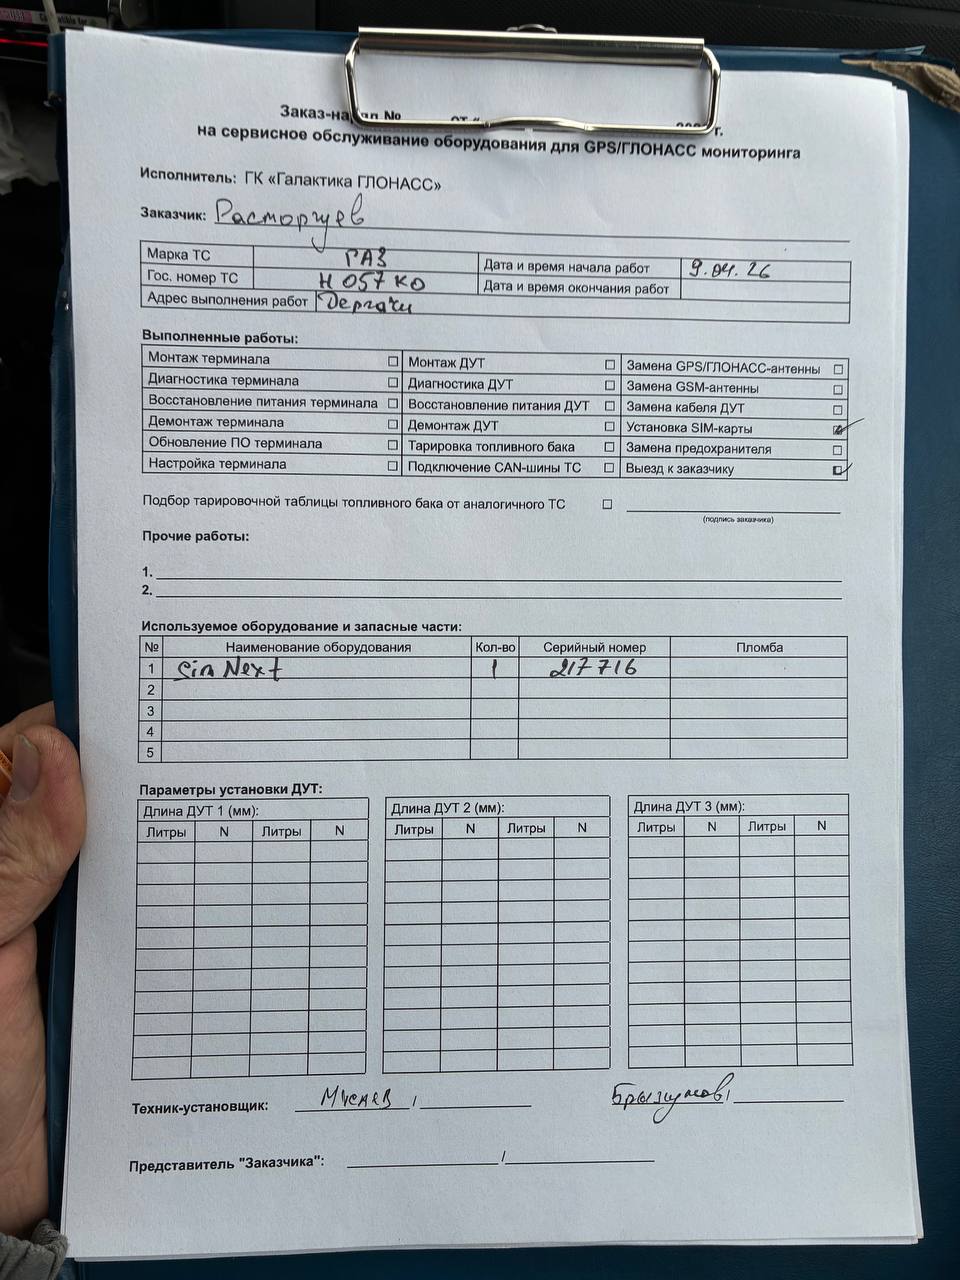 Заказ-наряд № от «
г.
на сервисное обслуживание оборудования для GPS/ГЛОНАСС мониторинга
Исполнитель: ГК «Галактика ГЛОНАСС»
Заказчик: Расторгуев
Марка ТС ГАЗ Дата и время начала работ 9.04.26
Гос. номер ТС Н 057 КО Дата и время окончания работ
Адрес выполнения работ Дергачи
Выполненные работы:
Монтаж терминала ☐ Монтаж ДУТ ☐ Замена GPS/ГЛОНАСС-антенны ☐
Диагностика терминала ☐ Диагностика ДУТ ☐ Замена GSM-антенны ☐
Восстановление питания терминала ☐ Восстановление питания ДУТ ☐ Замена кабеля ДУТ ☐
Демонтаж терминала ☐ Демонтаж ДУТ ☐ Установка SIM-карты ☑
Обновление ПО терминала ☐ Тарировка топливного бака ☐ Замена предохранителя ☐
Настройка терминала ☐ Подключение CAN-шины ТС ☐ Выезд к заказчику ☑
Подбор тарировочной таблицы топливного бака от аналогичного ТС ☐
(подпись заказчика)
Прочие работы:
1.
2.
Используемое оборудование и запасные части:
№ Наименование оборудования Кол-во Серийный номер Пломба
1 Sin Next 1 217716
2
3
4
5
Параметры установки ДУТ:
Длина ДУТ 1 (мм): Длина ДУТ 2 (мм): Длина ДУТ 3 (мм):
Литры N Литры N Литры N Литры N Литры N Литры N
Техник-установщик: / /
Представитель "Заказчика": /